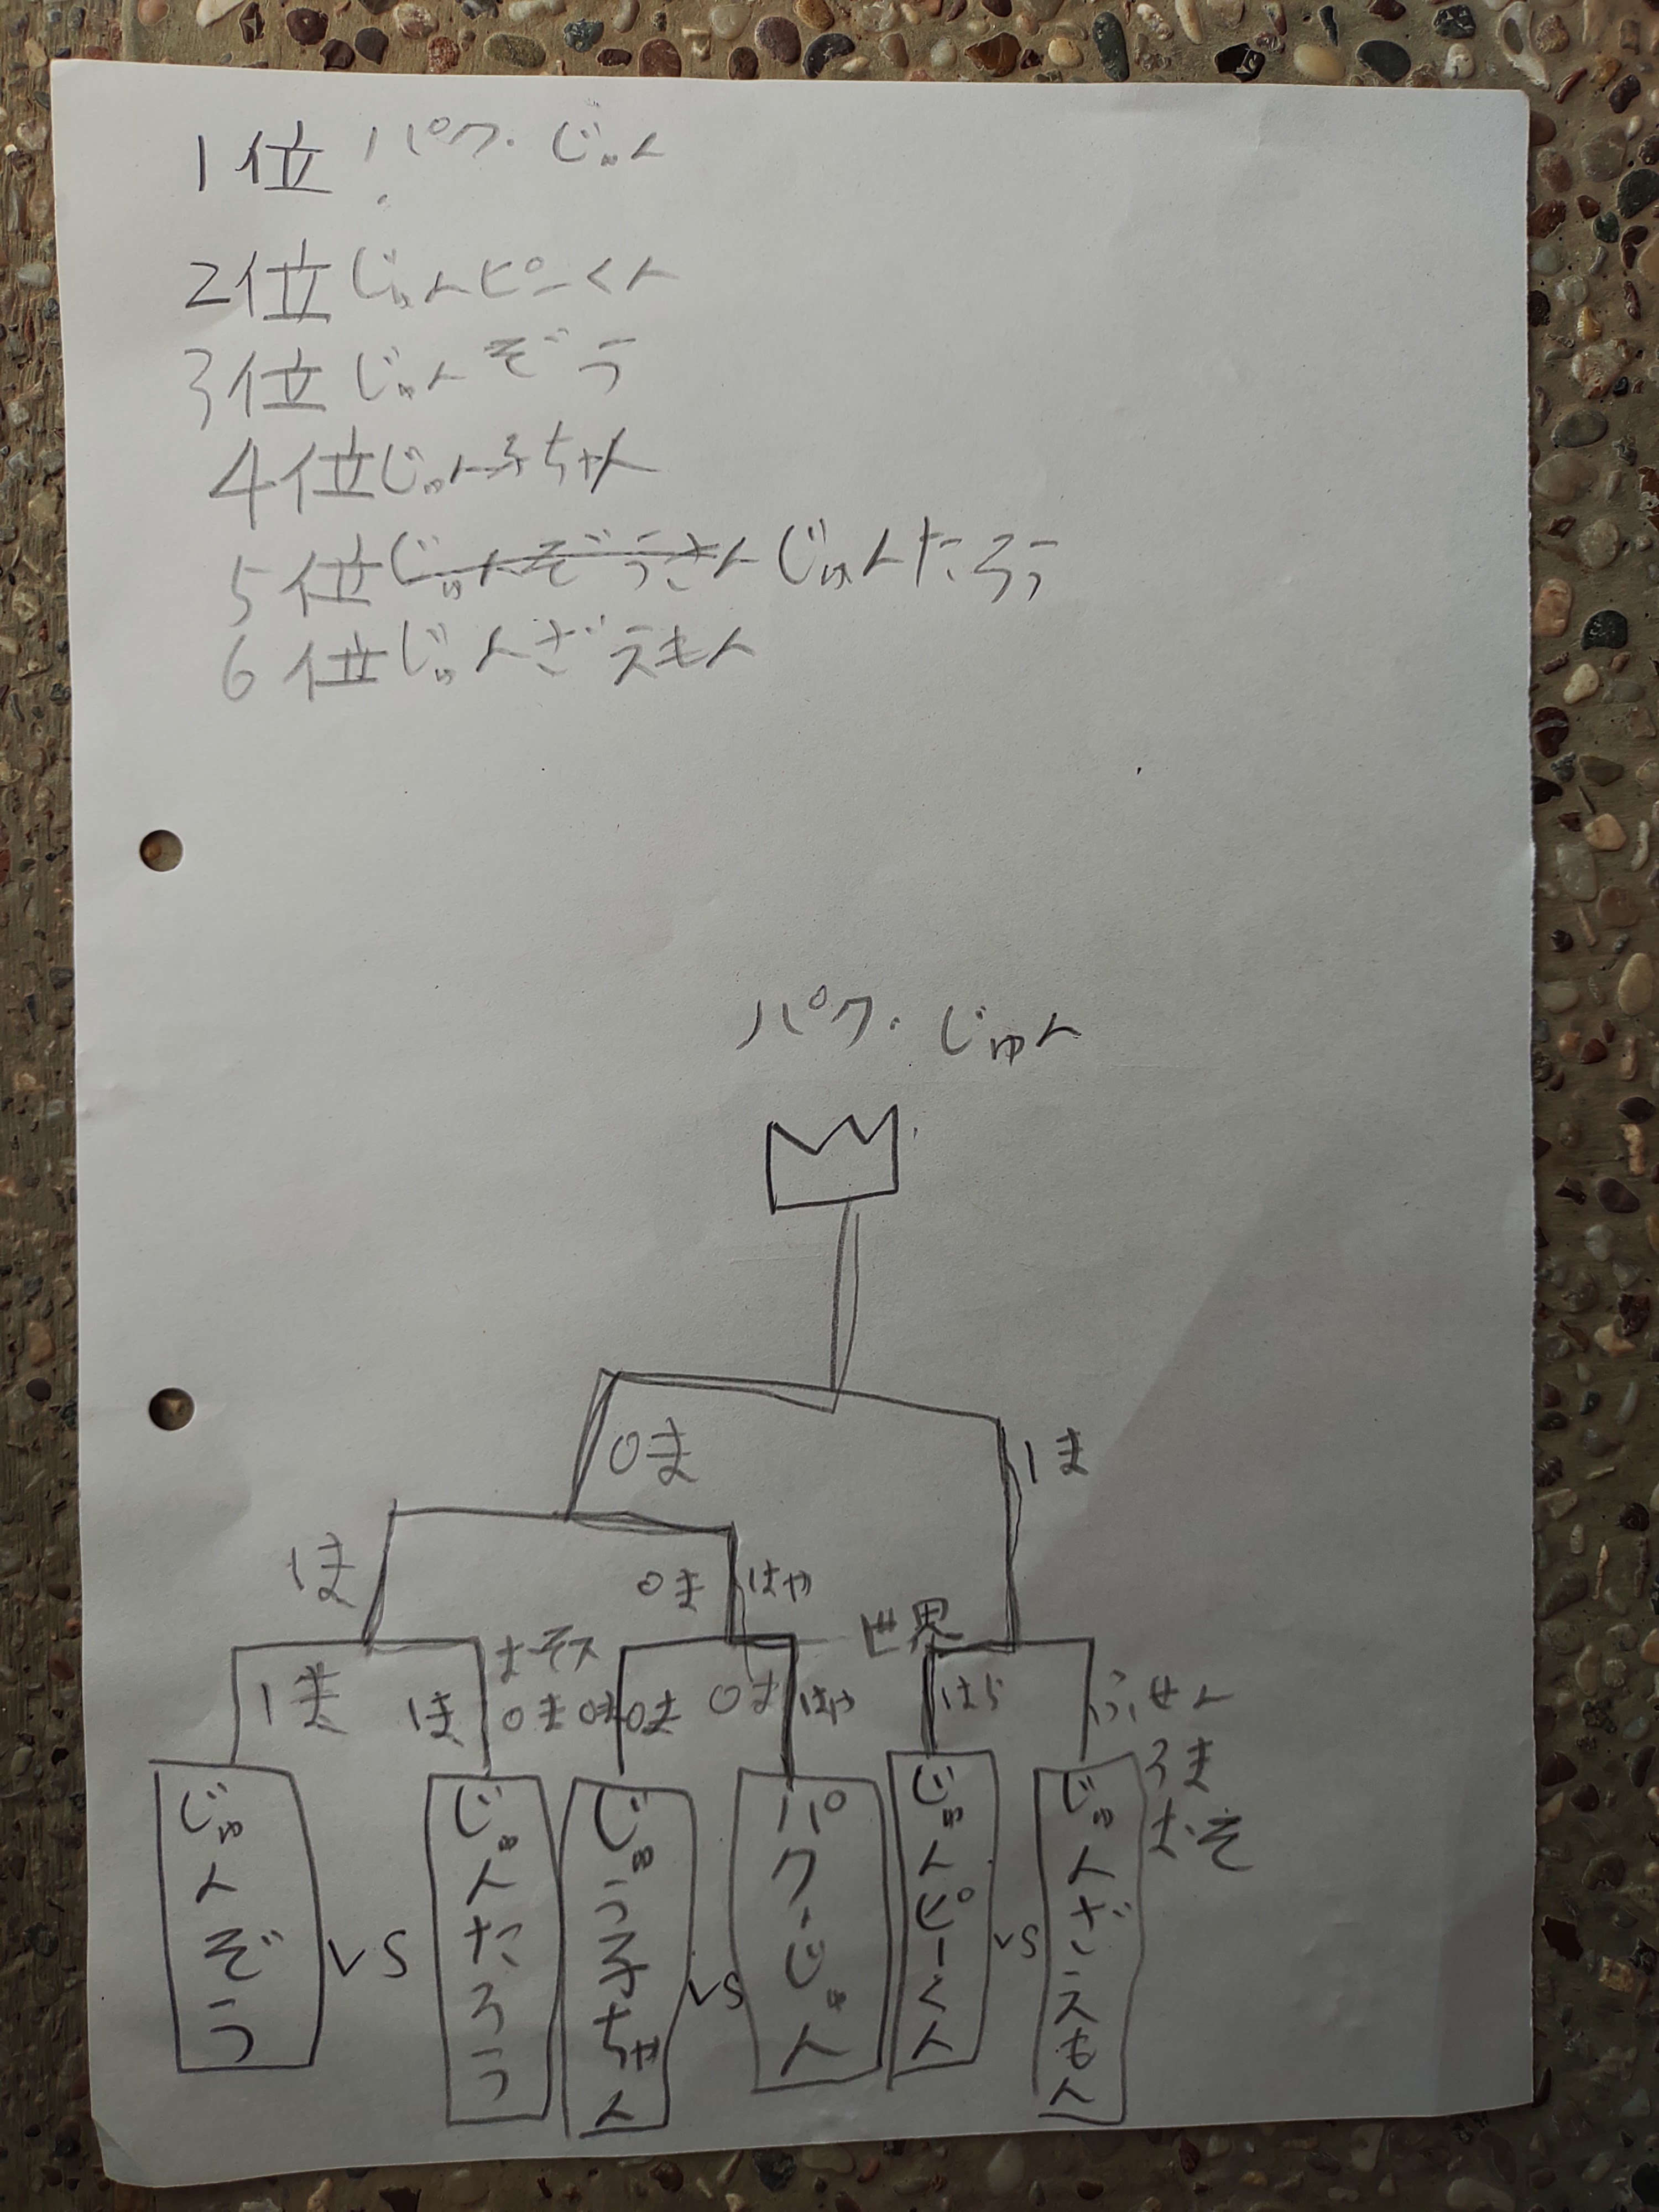 1位 パク・じゅん
2位じゅんピーくん
3位じゅんぞう
4位じゅん子ちゃん
5位じゅんぞうさんじゅんたろう
6位じゅんざえもん
パク・じゅん
0ま
1ま
1ま
0ま
はや
世界
1ま
1ま
おそス
0ま
0ま
0ま
0ま
はや
はら
ふせん
3ま
おそ
じゅんぞう
vs
じゅんたろう
じゅう子ちゃん
vs
パク・じゅん
じゅんピーくん
vs
じゅんざえもん